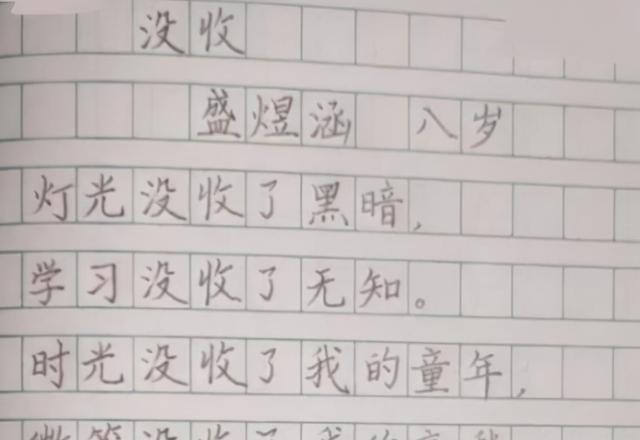 没收
盛煜涵 八岁
灯光没收了黑暗,
学习没收了无知。
时光没收了我的童年,